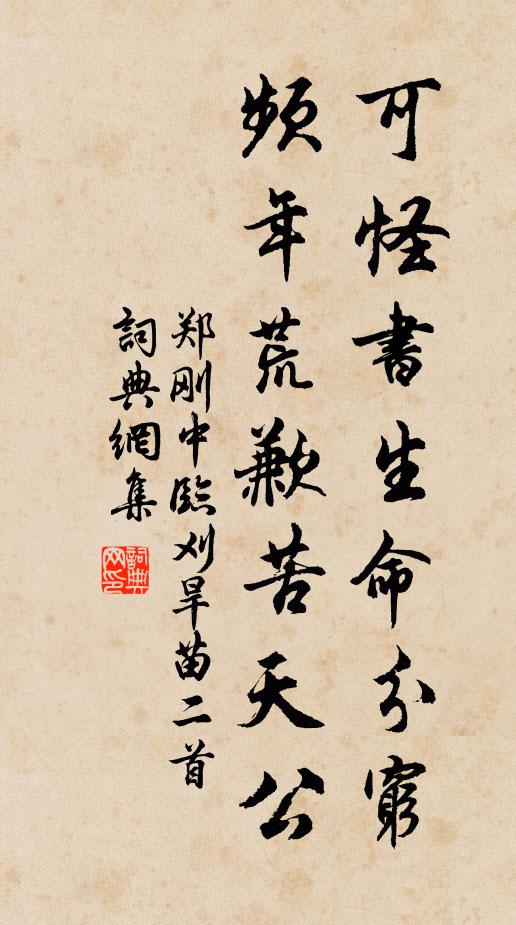 可怪書生命分窮
頻年荒歉苦天公
郑刚中臨刈旱苗二首
詞典網集
詞典网印